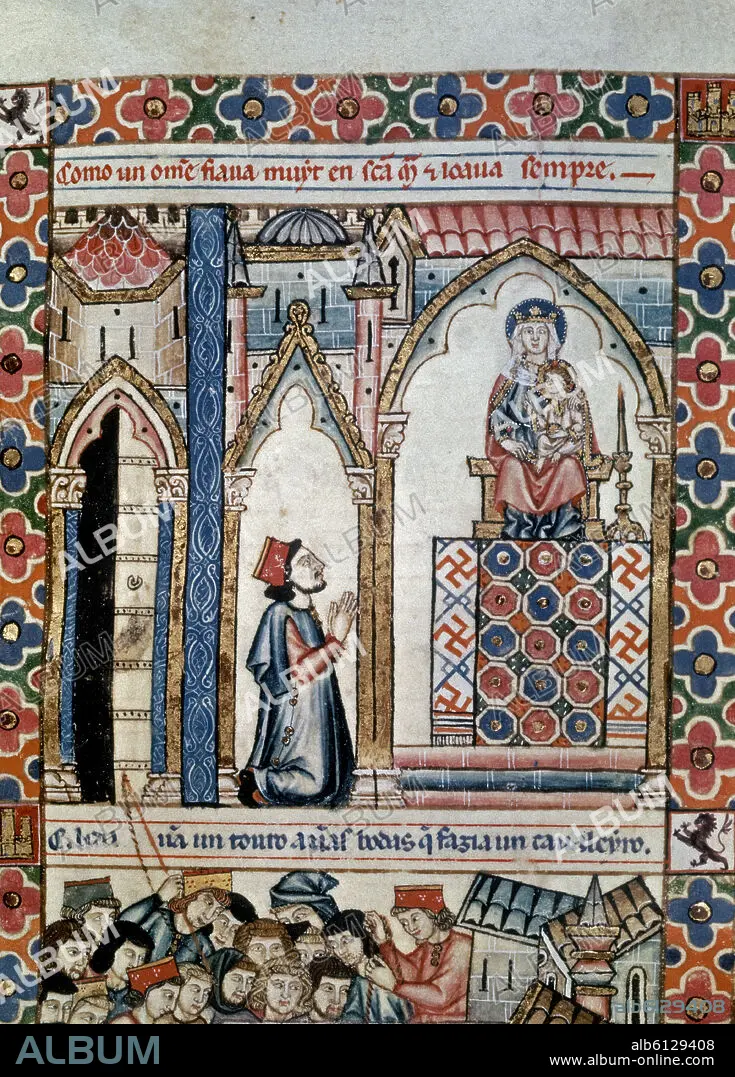 Como un om̃e fiaua muỹt en sc̃a m̃ ⁊ loaua sempre.
uã un touro a ũas bodas q̃ fazia un caualleyro.
ALBUM
alb6129408
www.album-online.com